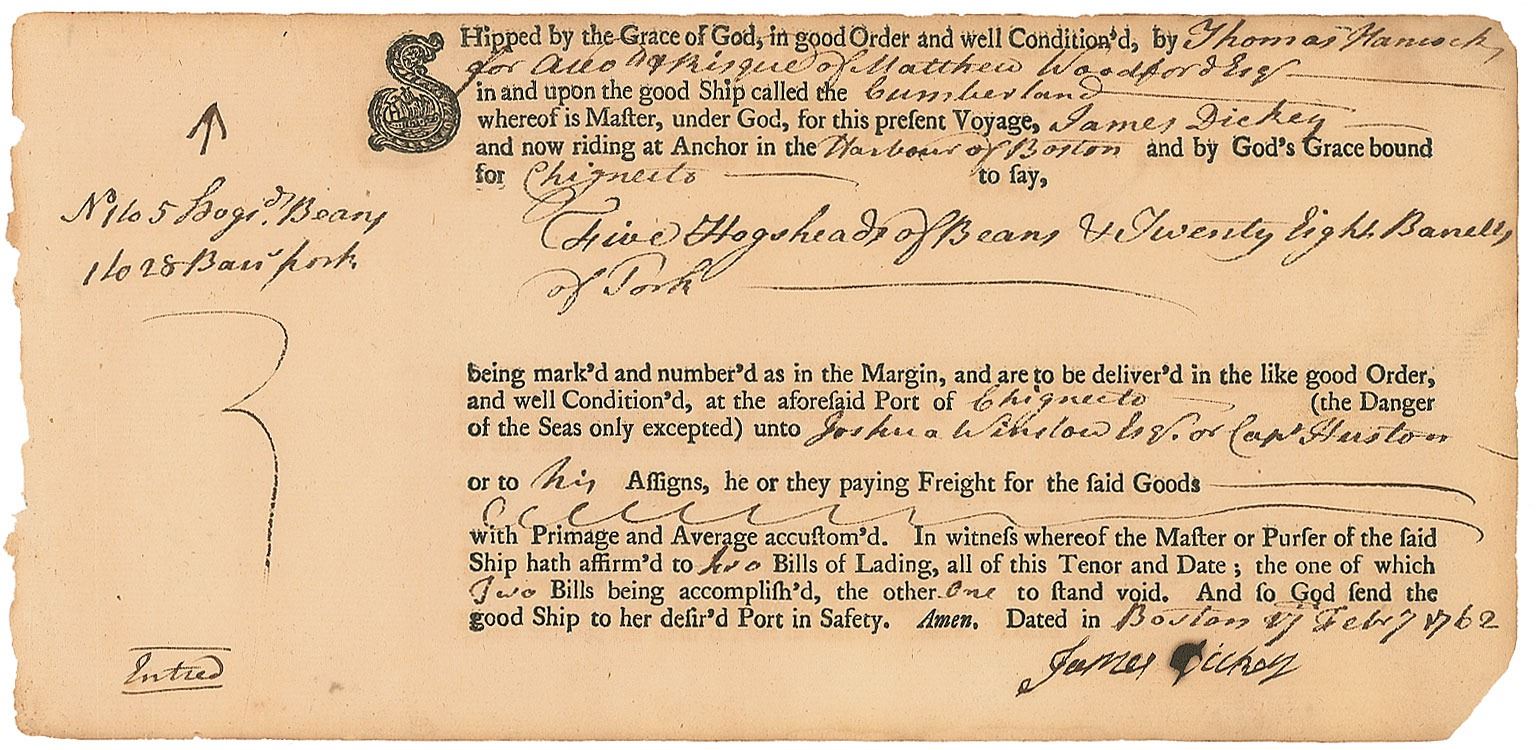 SHipped by the Grace of God, in good Order and well Condition'd, by Thomas Hancock
for Acco & Risque of Matthew Woodford Esqr
in and upon the good Ship called the Cumberland
whereof is Maſter, under God, for this preſent Voyage, James Dickey
and now riding at Anchor in the Harbour of Boston and by God's Grace bound
for Chignecto to ſay,
No 1 to 5 Hogsds Beans
1 to 28 Barrs pork
Five Hogsheads of Beans & Twenty Eight Barrells
of Pork
being mark'd and number'd as in the Margin, and are to be deliver'd in the like good Order,
and well Condition'd, at the aforeſaid Port of Chignecto (the Danger
of the Seas only excepted) unto Joshua Winslow Esqr. or Capt Huston
or to his Aſſigns, he or they paying Freight for the ſaid Goods
with Primage and Average accuſtom'd. In witneſs whereof the Maſter or Purſer of the ſaid
Ship hath affirm'd to two Bills of Lading, all of this Tenor and Date; the one of which
Two Bills being accompliſh'd, the other One to ſtand void. And ſo God ſend the
good Ship to her deſir'd Port in Safety. Amen. Dated in Boston 17 Febry 1762
James Dickey
Entred